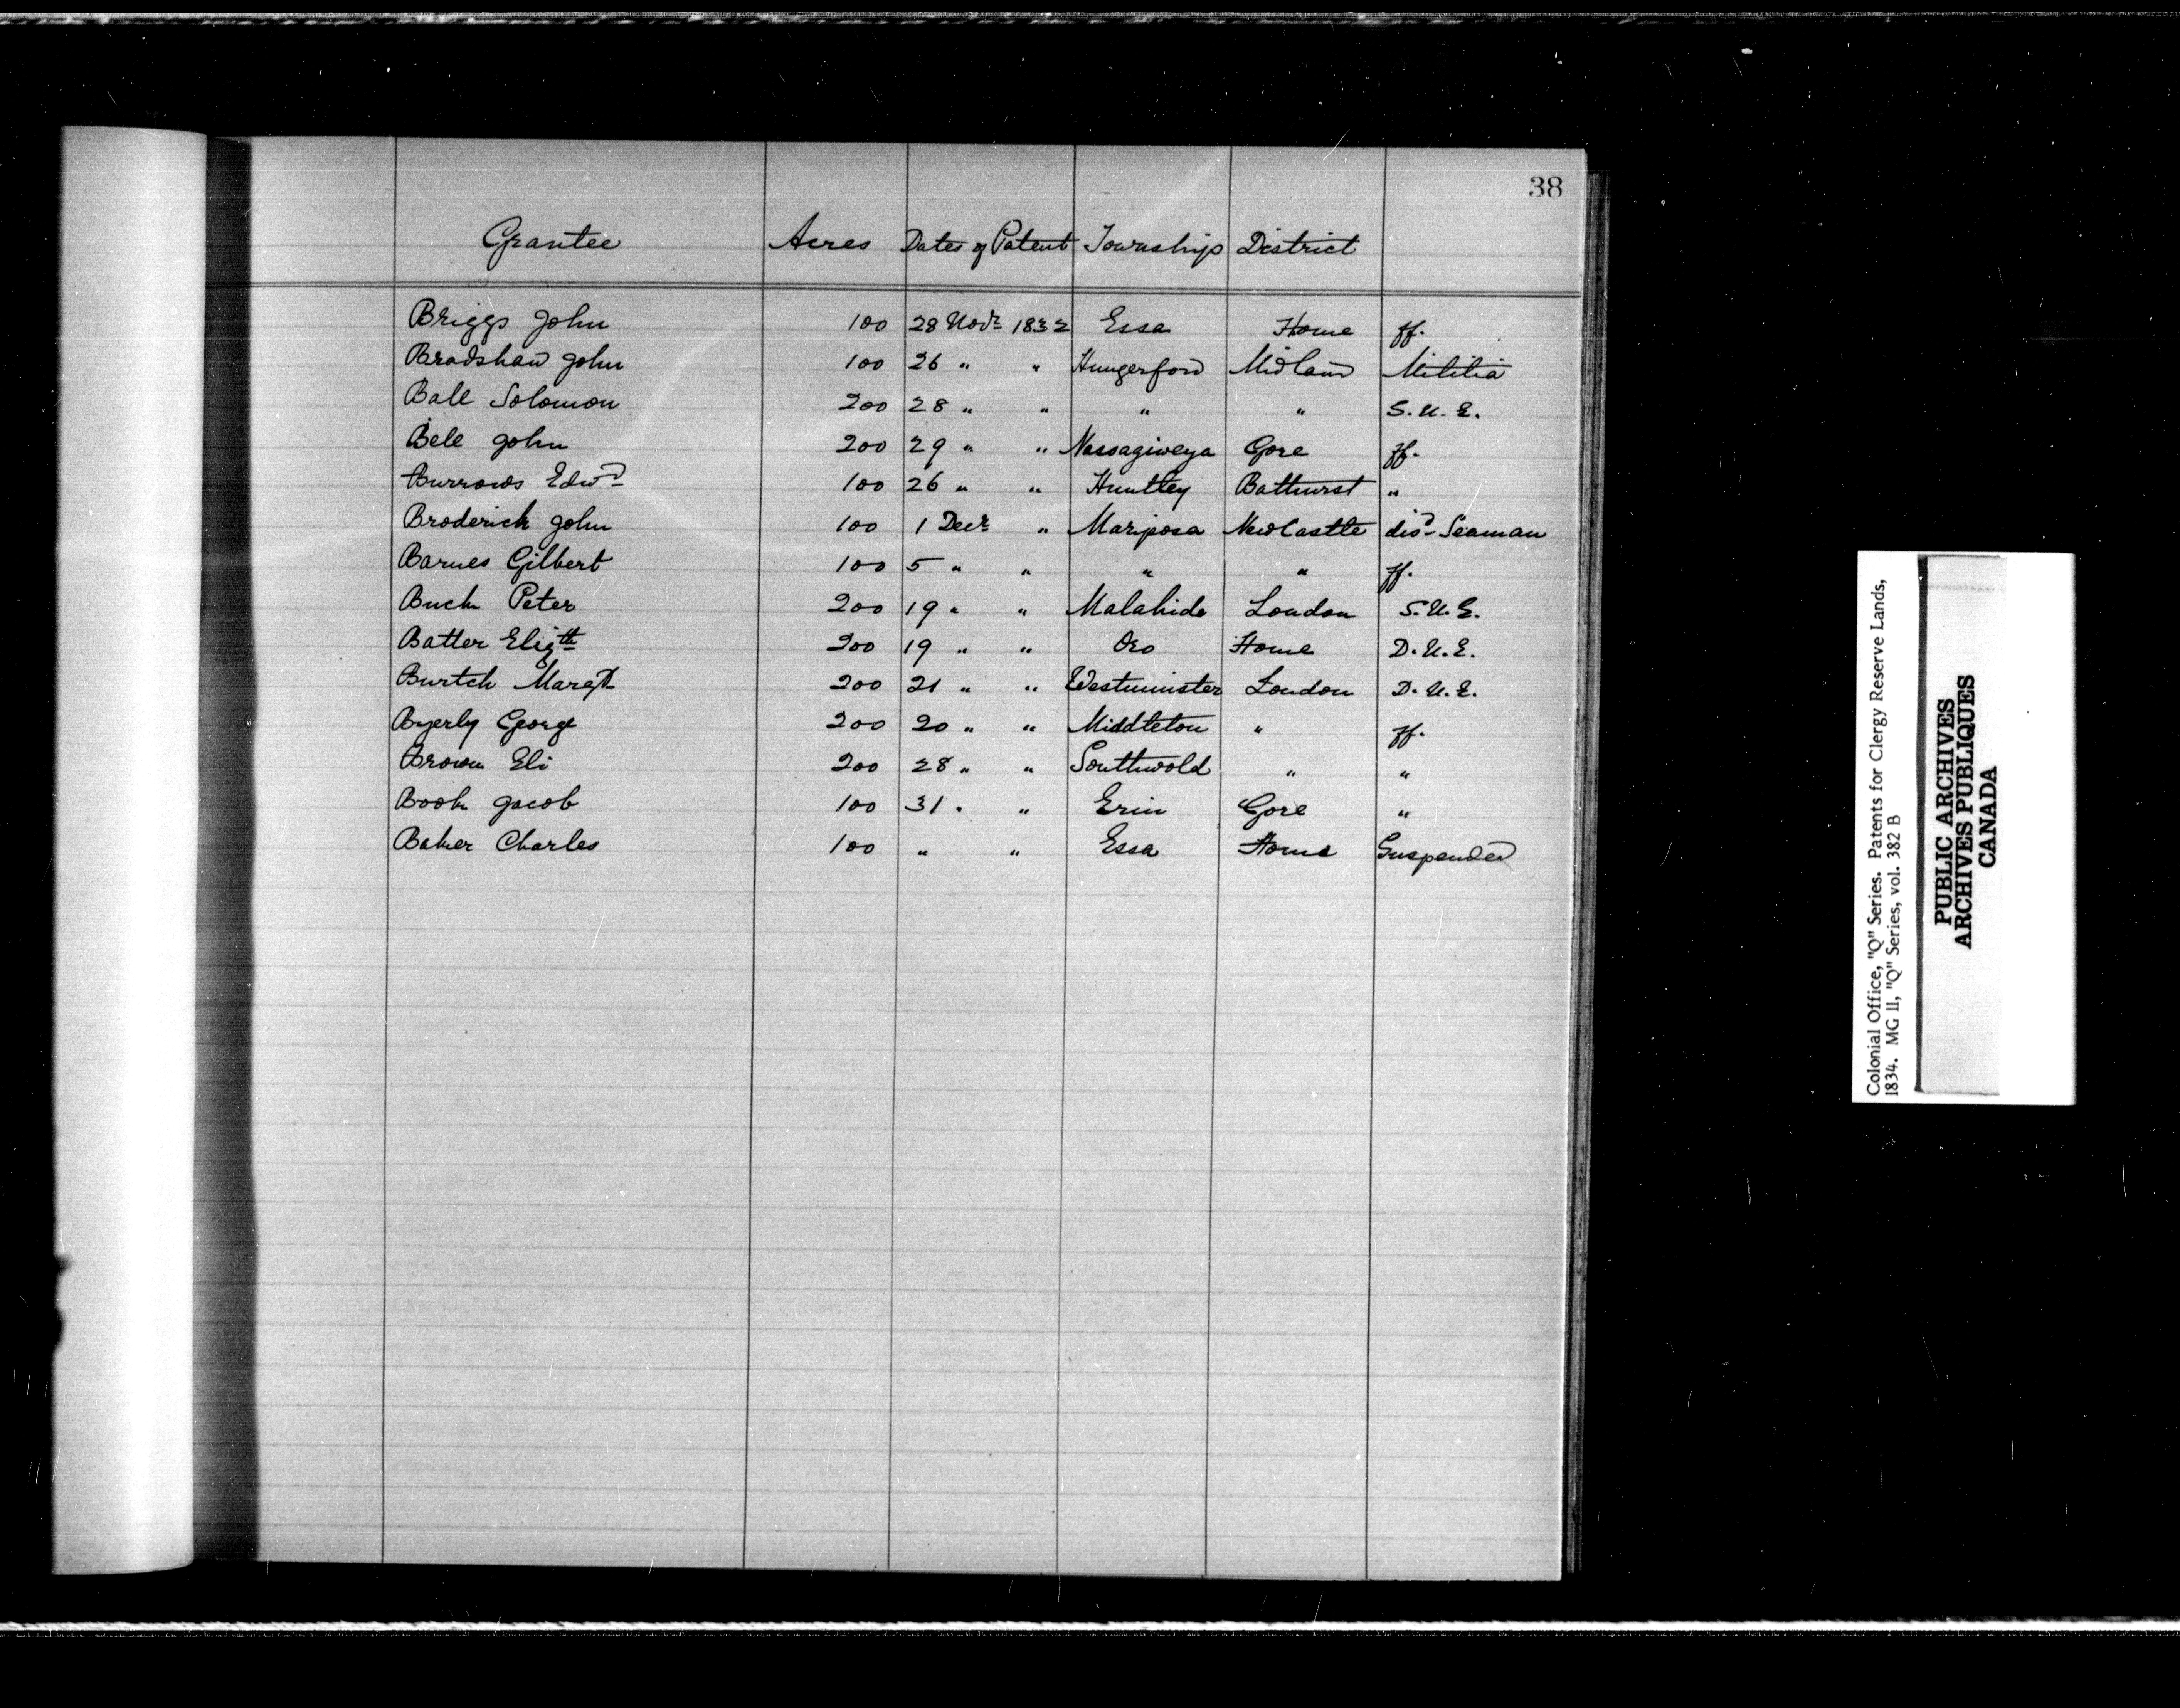 38
Grantee Acres Dates of Patent Township District
Briggs John 100 28 Novr 1832 Essa Home ff.
Bradshaw John 100 26 " " Hungerford Midland Militia
Ball Solomon 200 28 " " " " S.U.E.
Bell John 200 29 " " Nassagiweya Gore ff.
Burrows Edwd 100 26 " " Huntley Bathurst "
Broderick John 100 1 Decr " Mariposa NewCastle disd Seaman
Barnes Gilbert 100 5 " " " " ff.
Buck Peter 200 19 " " Malahide London S.U.E.
Batter Elizth 200 19 " " Oro Home D.U.E.
Burtch Margt 200 21 " " Westminister London D.U.E.
Byerly George 200 20 " " Middleton " ff.
Brown Eli 200 28 " " Southwold " "
Book Jacob 100 31 " " Erin Gore "
Baker Charles 100 " " Essa Home Suspended
Colonial Office, "Q" Series. Patents for Clergy Reserve Lands,
1834. MG 11, "Q" Series, vol. 382 B
PUBLIC ARCHIVES
ARCHIVES PUBLIQUES
CANADA